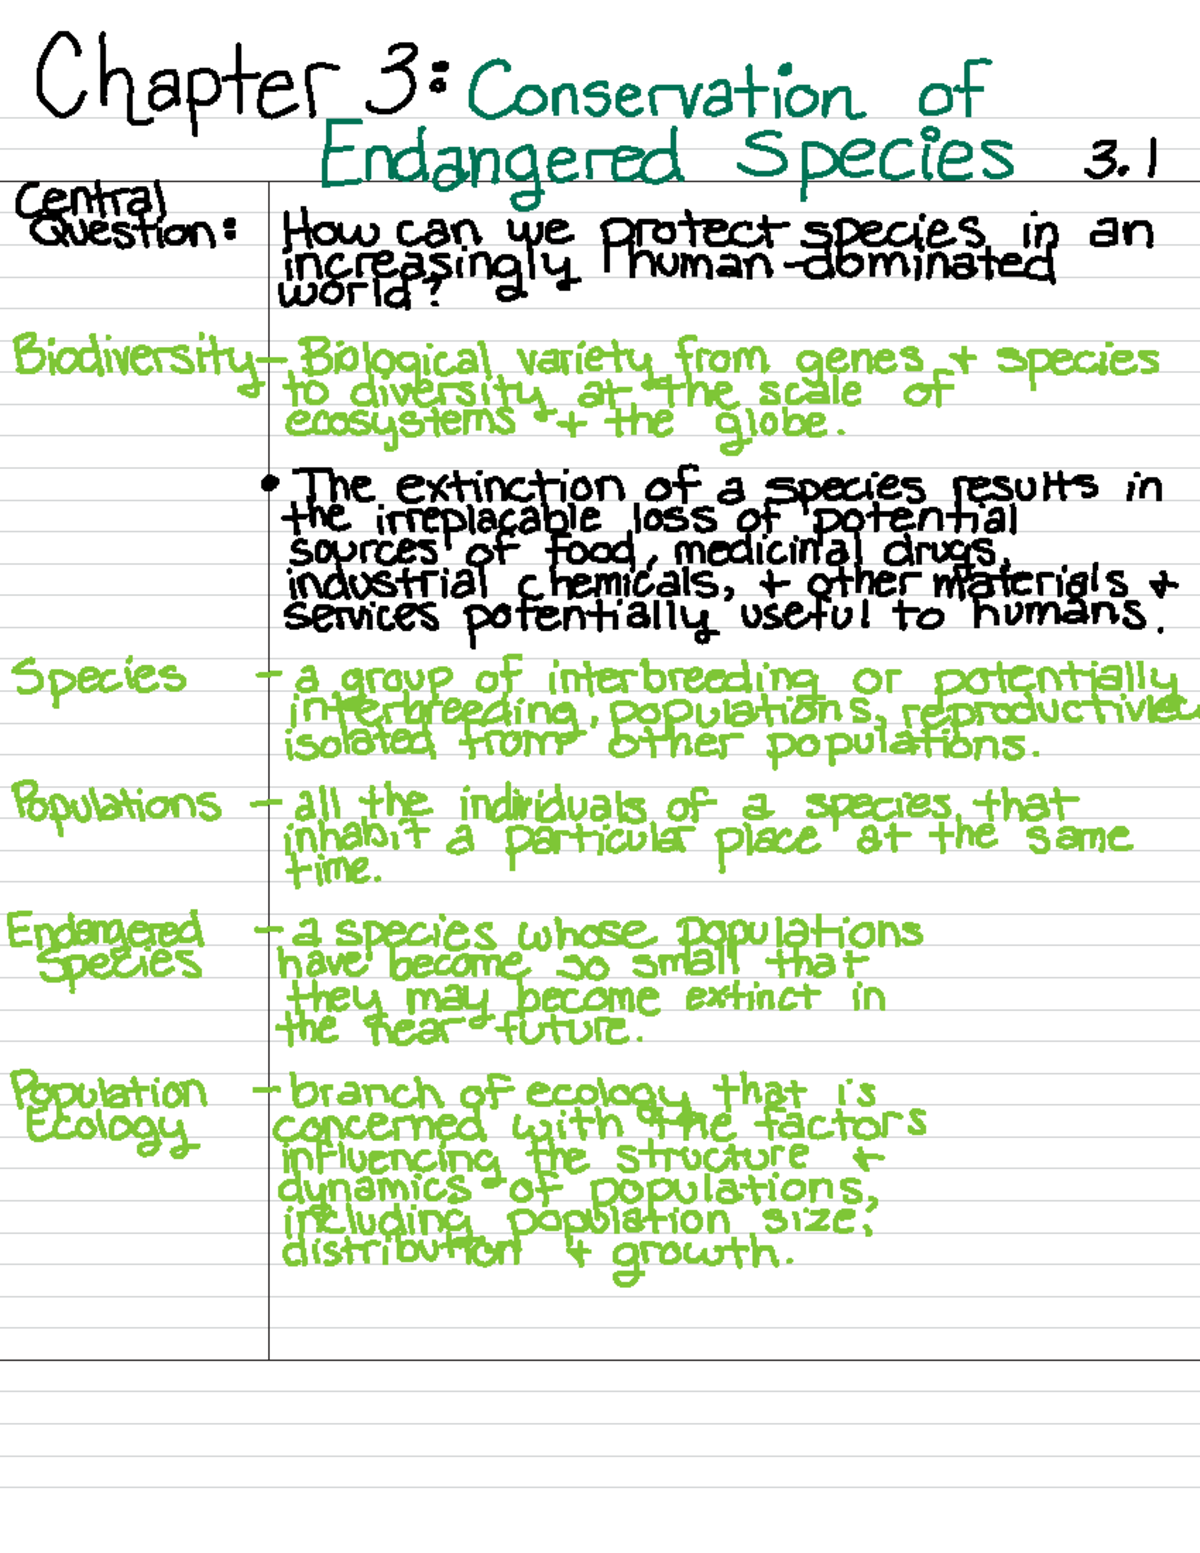 Chapter 3: Conservation of
Endangered Species 3.1
Central
Question:
How can we protect species in an
increasingly human-dominated
world?
Biodiversity - Biological variety from genes + species
to diversity at the scale of
ecosystems + the globe.
• The extinction of a species results in
the irreplacable loss of potential
sources of food, medicinal drugs,
industrial chemicals, + other materials +
services potentially useful to humans.
Species - a group of interbreeding or potentially
interbreeding, populations, reproductivley
isolated from other populations.
Populations - all the individuals of a species that
inhabit a particular place at the same
time.
Endangered - a species whose populations
Species have become so small that
they may become extinct in
the near future.
Population - branch of ecology that is
Ecology concerned with the factors
influencing the structure +
dynamics of populations,
including population size,
distribution + growth.